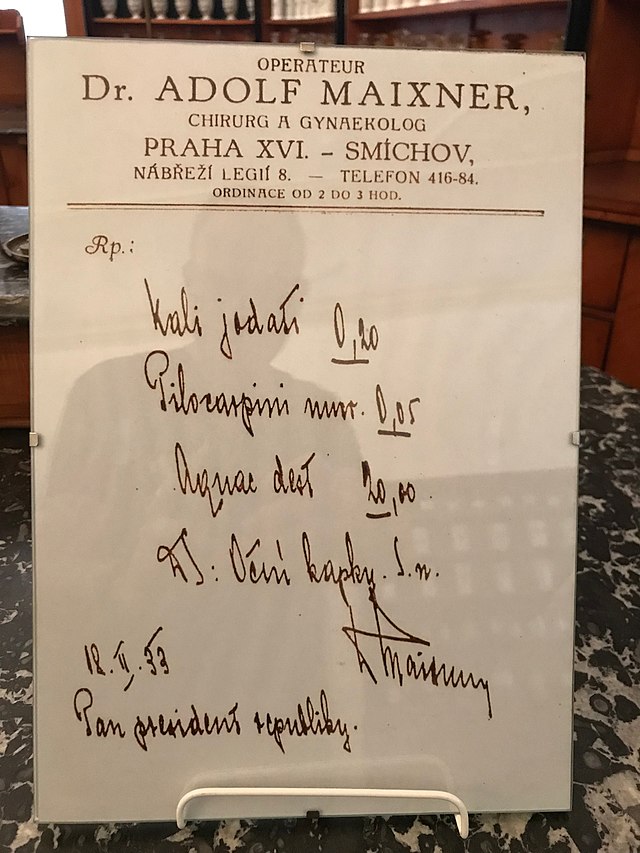 OPERATEUR
Dr. ADOLF MAIXNER,
CHIRURG A GYNAEKOLOG
PRAHA XVI. – SMÍCHOV,
NÁBŘEŽÍ LEGIÍ 8. — TELEFON 416-84.
ORDINACE OD 2 DO 3 HOD.
Rp.:
Kali jodati 0,20
Pilocarpini mur. 0,05
Aquae dest 20,00
DS: Oční kapky. S. n.
Maixner
18. II. 33
Pan president republiky.